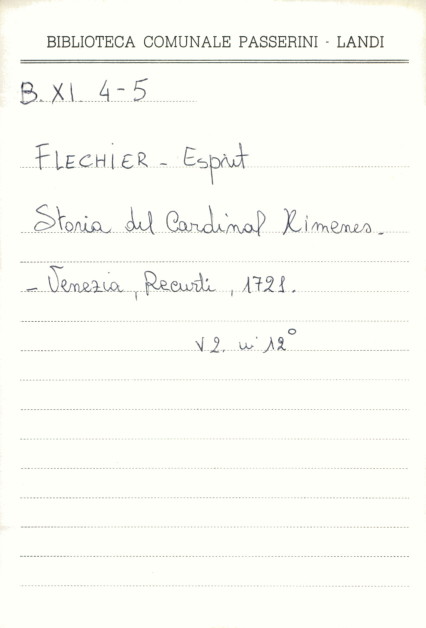 BIBLIOTECA COMUNALE PASSERINI - LANDI
B. XI. 4-5
FLECHIER - Esprit
Storia del Cardinal Ximenes.
- Venezia, Recurti, 1721.
V 2. in 12°